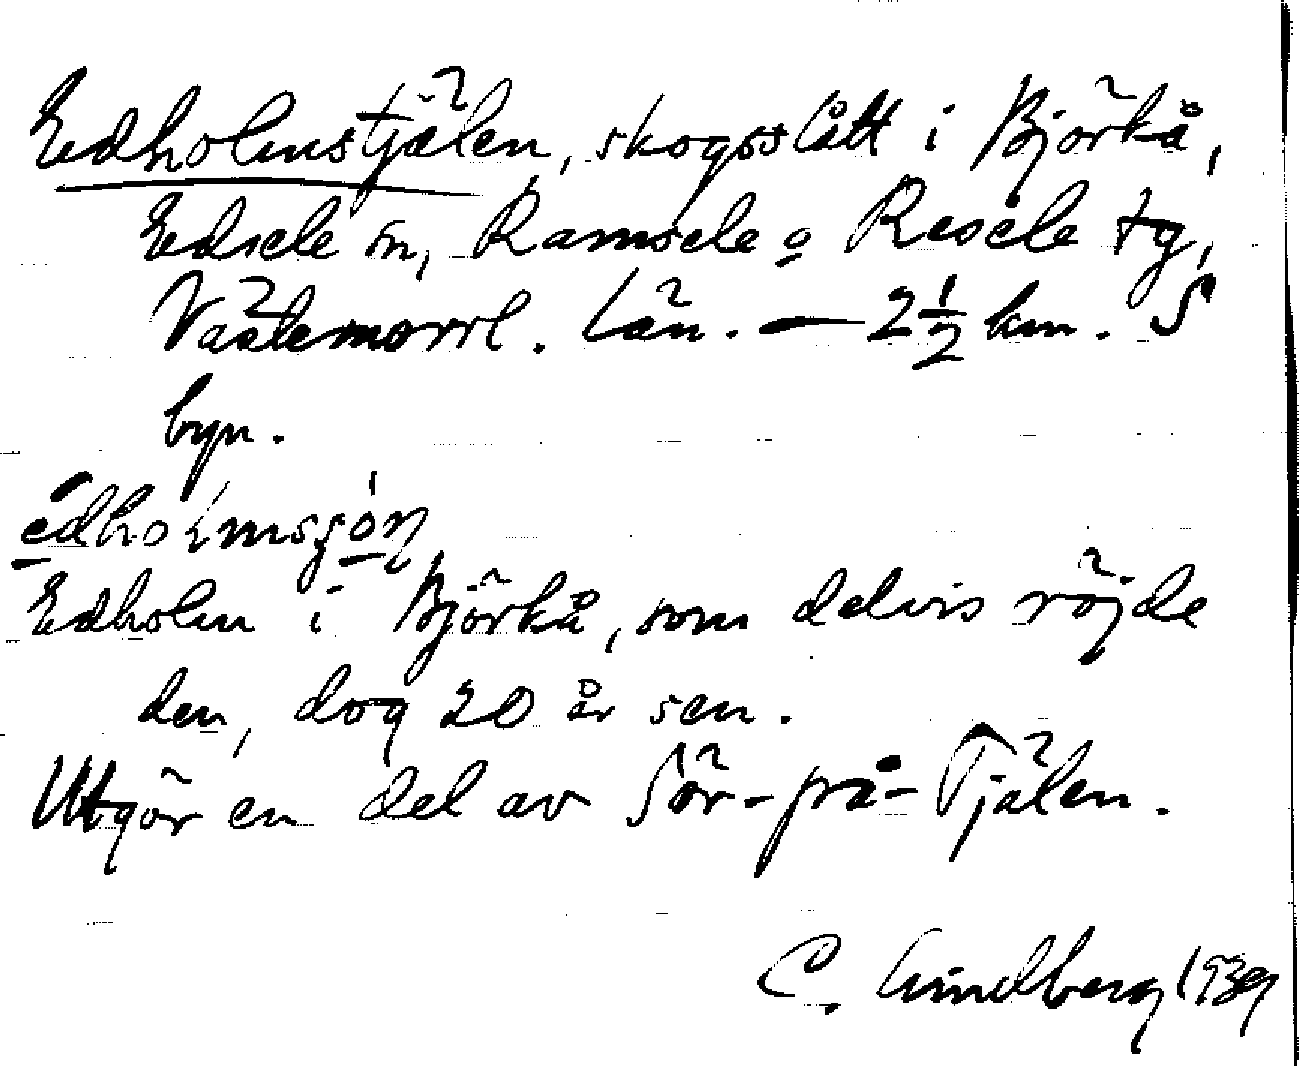 Edholmstjälen, skogsslått i Björkå,
Edsele sn, Ramsele o Resele tg,
Västernorrl. län. — 2½ km. S
byn.
Edholm i Björkå, som delvis röjde
den, dog 20 år sen.
Utgör en del av Sör-på-Tjälen.
C. Lindberg 1939